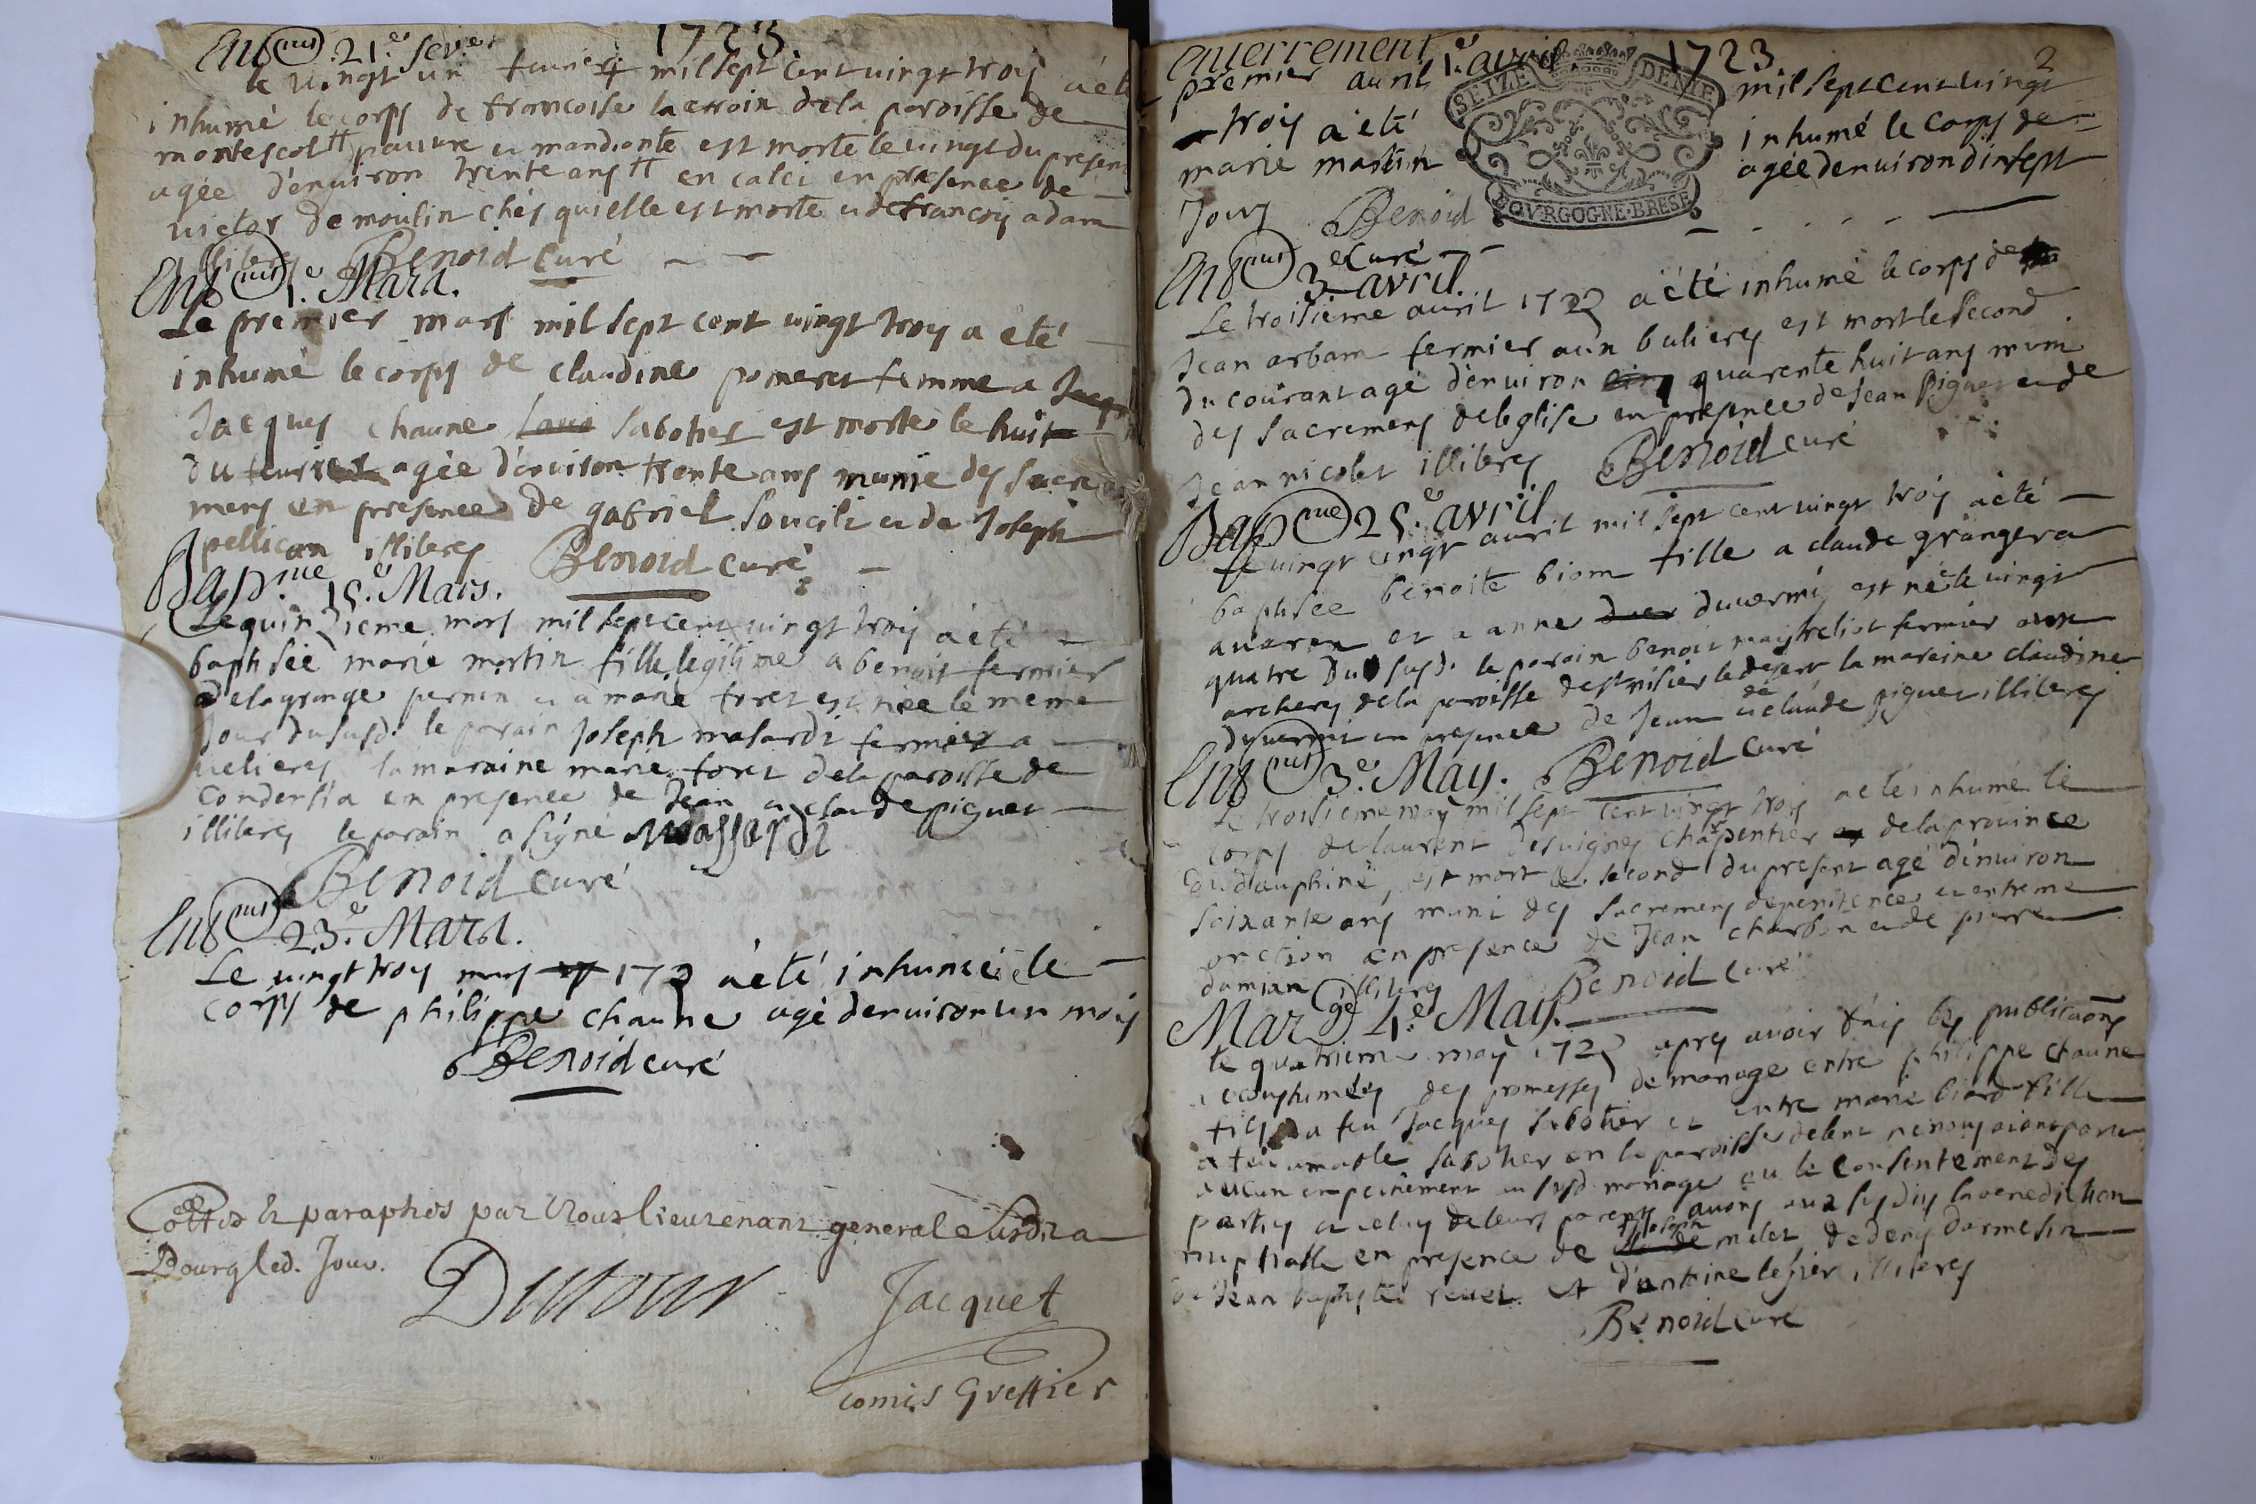 1723.
Ent.^ms 21.e fev.er
le vingt un fevrier mil sept cent vingt trois a eté
inhumé le corps de francoise lacroix de la paroisse de
montescol pauvre et mandiante est morte le vingt du present
agée d'environ trente ans en calei en presence de
victor demoulin chés qui elle est morte et de francois adam
illiteres Benoid curé
Ent.^ms 1.e Mars.
Le premier mars mil sept cent vingt trois a eté
inhumé le corps de claudine pomeret femme a
Jacques chaune sabotier est morte le huit
du fevrier agée d'environ trente ans munie des sacre
mens en presence de gabriel soucili et de Joseph
pellican illiteres Benoid curé
Bap.me 15.e Mars.
Le quinzieme mars mil sept cent vingt trois a eté
baptisée marie martin fille legitime a benoit fermier
de la grange pernin et a marie foret est née le meme
jour du susd. le parain Joseph masardi fermier a
velieres la maraine marie foret de la paroisse de
condersia en presence de Jean et claude piguet
illiteres le parain a signé Massardi
Benoid curé
Ent.^ms 23.e Mars.
Le vingt trois mars 1723 a eté inhumé le
corps de philippe chaune agé d'environ un mois
Benoid curé
Cottés et paraphés par Nous lieutenant general susdit a
Bourg led. Jour.
Dutour Jacquet
comis Greffier
2
1723.
Enterrement 1.er avril
premier avril mil sept cent vingt
trois a eté inhumé le corps de
marie martin agée d'environ dixsept
jours Benoid
curé
SEIZE DENIE
BOVRGOGNE·BRESE
Ent.^ms 3.e avril.
Le troisieme avril 1723 a eté inhumé le corps de
Jean arbam fermier aux bulieres est mort le second
du courant agé d'environ quarente huit ans muni
des sacremens de leglise en presence de Jean piguet et de
Jean nicolet illiteres Benoid curé
Bap.me 25.e avril
Le vingt cinqt avril mil sept cent vingt trois a eté
baptisée benoite biom fille a claude granger a
avaren et a anne duvermi est née le vingt
quatre du susd. le parain benoit maistreliot fermier aux
archers de la paroisse de st nisier le desert la maraine claudine
duvermi en presence de Jean et de claude piguet illiteres
Benoid curé
Ent.^ms 3.e May.
Le troisieme may mil sept cent vingt trois a eté inhumé le
corps de laurent desvignes charpentier de la province
du dauphiné, est mort le second du present agé d'environ
soixante ans muni des sacremens de penitence et extreme
onction en presence de Jean charbon et de pierre
damian illiteres Benoid curé
Mar.ge 4.e May.
le quatrieme may 1723 apres avoir fais les publicaons
accoustumées des promesses de mariage entre philippe chaune
fils a feu Jacques sabotier et entre marie biard fille
a feu amable sabotier en la paroisse de lent ne nous aiant paru
aucun empeichement au susd. mariage eu le consentement des
parties et celuy de leurs parens avons aux susdits la benediction
nuptialle en presence de Joseph milet de denis darmesin
de Jean baptiste revel et d'antoine legier illiteres
Benoid curé